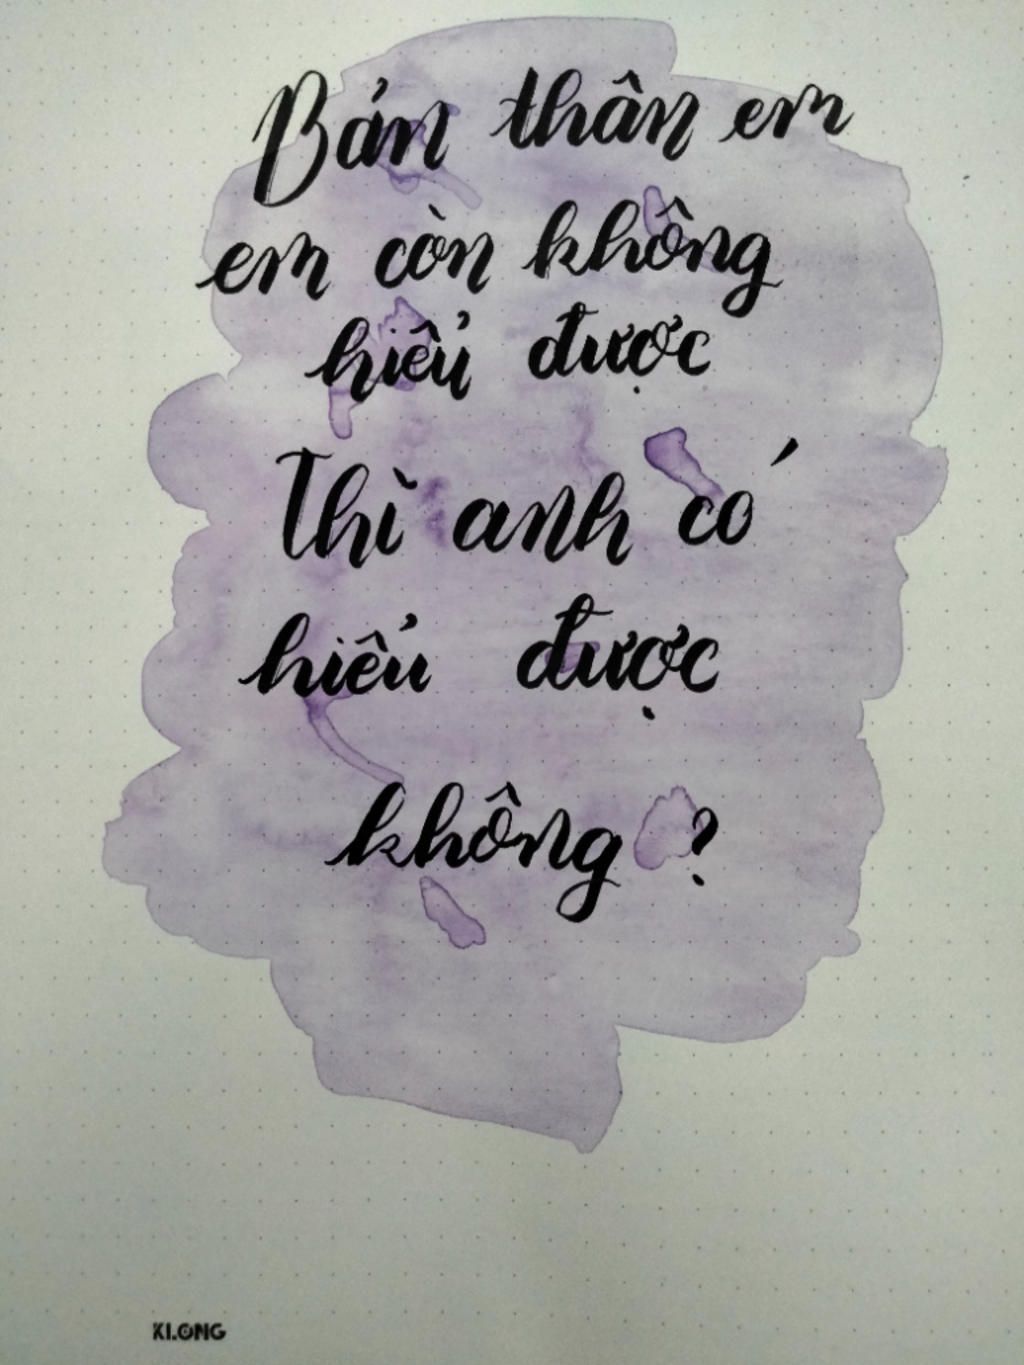 Bản thân em
em còn không
hiểu được
Thì anh có
hiểu được
không ?
KLONG